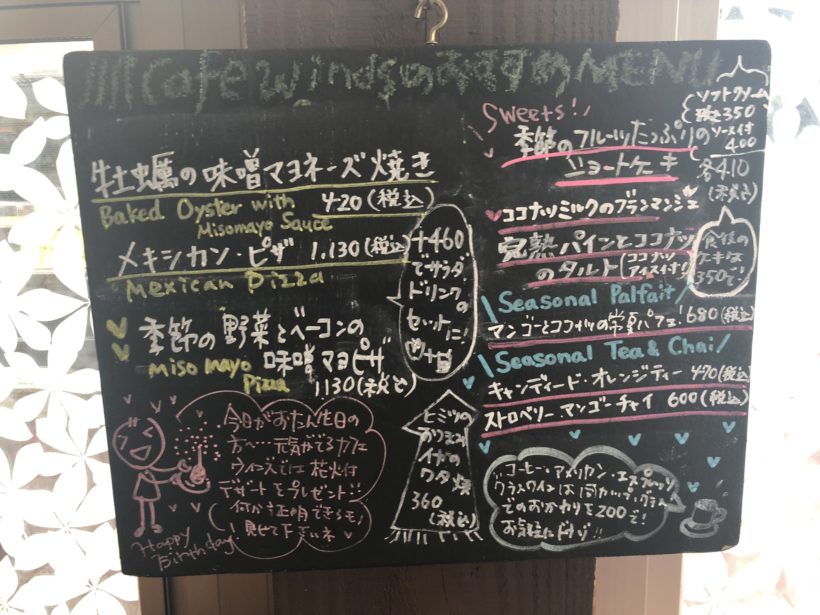 Cafe windsのおすすめMENU
牡蠣の味噌マヨネーズ焼き
Baked Oyster with
Misomayo Sauce
420(税込)
メキシカン・ピザ 1,130(税込)
Mexican Pizza
季節の野菜とベーコンの
味噌マヨピザ
miso mayo
Pizza
1130(税込)
+460
でサラダ
ドリンクの
セットに!
Sweets!
季節のフルーツたっぷりの
ショートケーキ
ソフトクリーム
税込350
ソース付
400
各410
(税込)
ココナッツミルクのブランマンジェ
完熟パインとココナッツ
のタルト(ココナッツ
アイス付!)
食後の
ケーキは
350で!
Seasonal Palfait
マンゴーとココナツの常夏パフェ! 680(税込)
Seasonal Tea & Chai
キャンディード・オレンジティー 470(税込)
ストロベリーマンゴーチャイ 600(税込)
今日がおたん生日の
方へ…元気がでるカフェ
ウインズでは花火付
デザートをプレゼント!!
何か証明できるモノ
見せて下さいネ
Happy
Birthday!
ヒミツの
おつまみ
イカの
ワタ焼
360
(税込)
コーヒー・アメリカン・エスプレッソ
グラスワインは同カップ・グラス
でのおかわりを200で!
お気軽にドウゾ!!